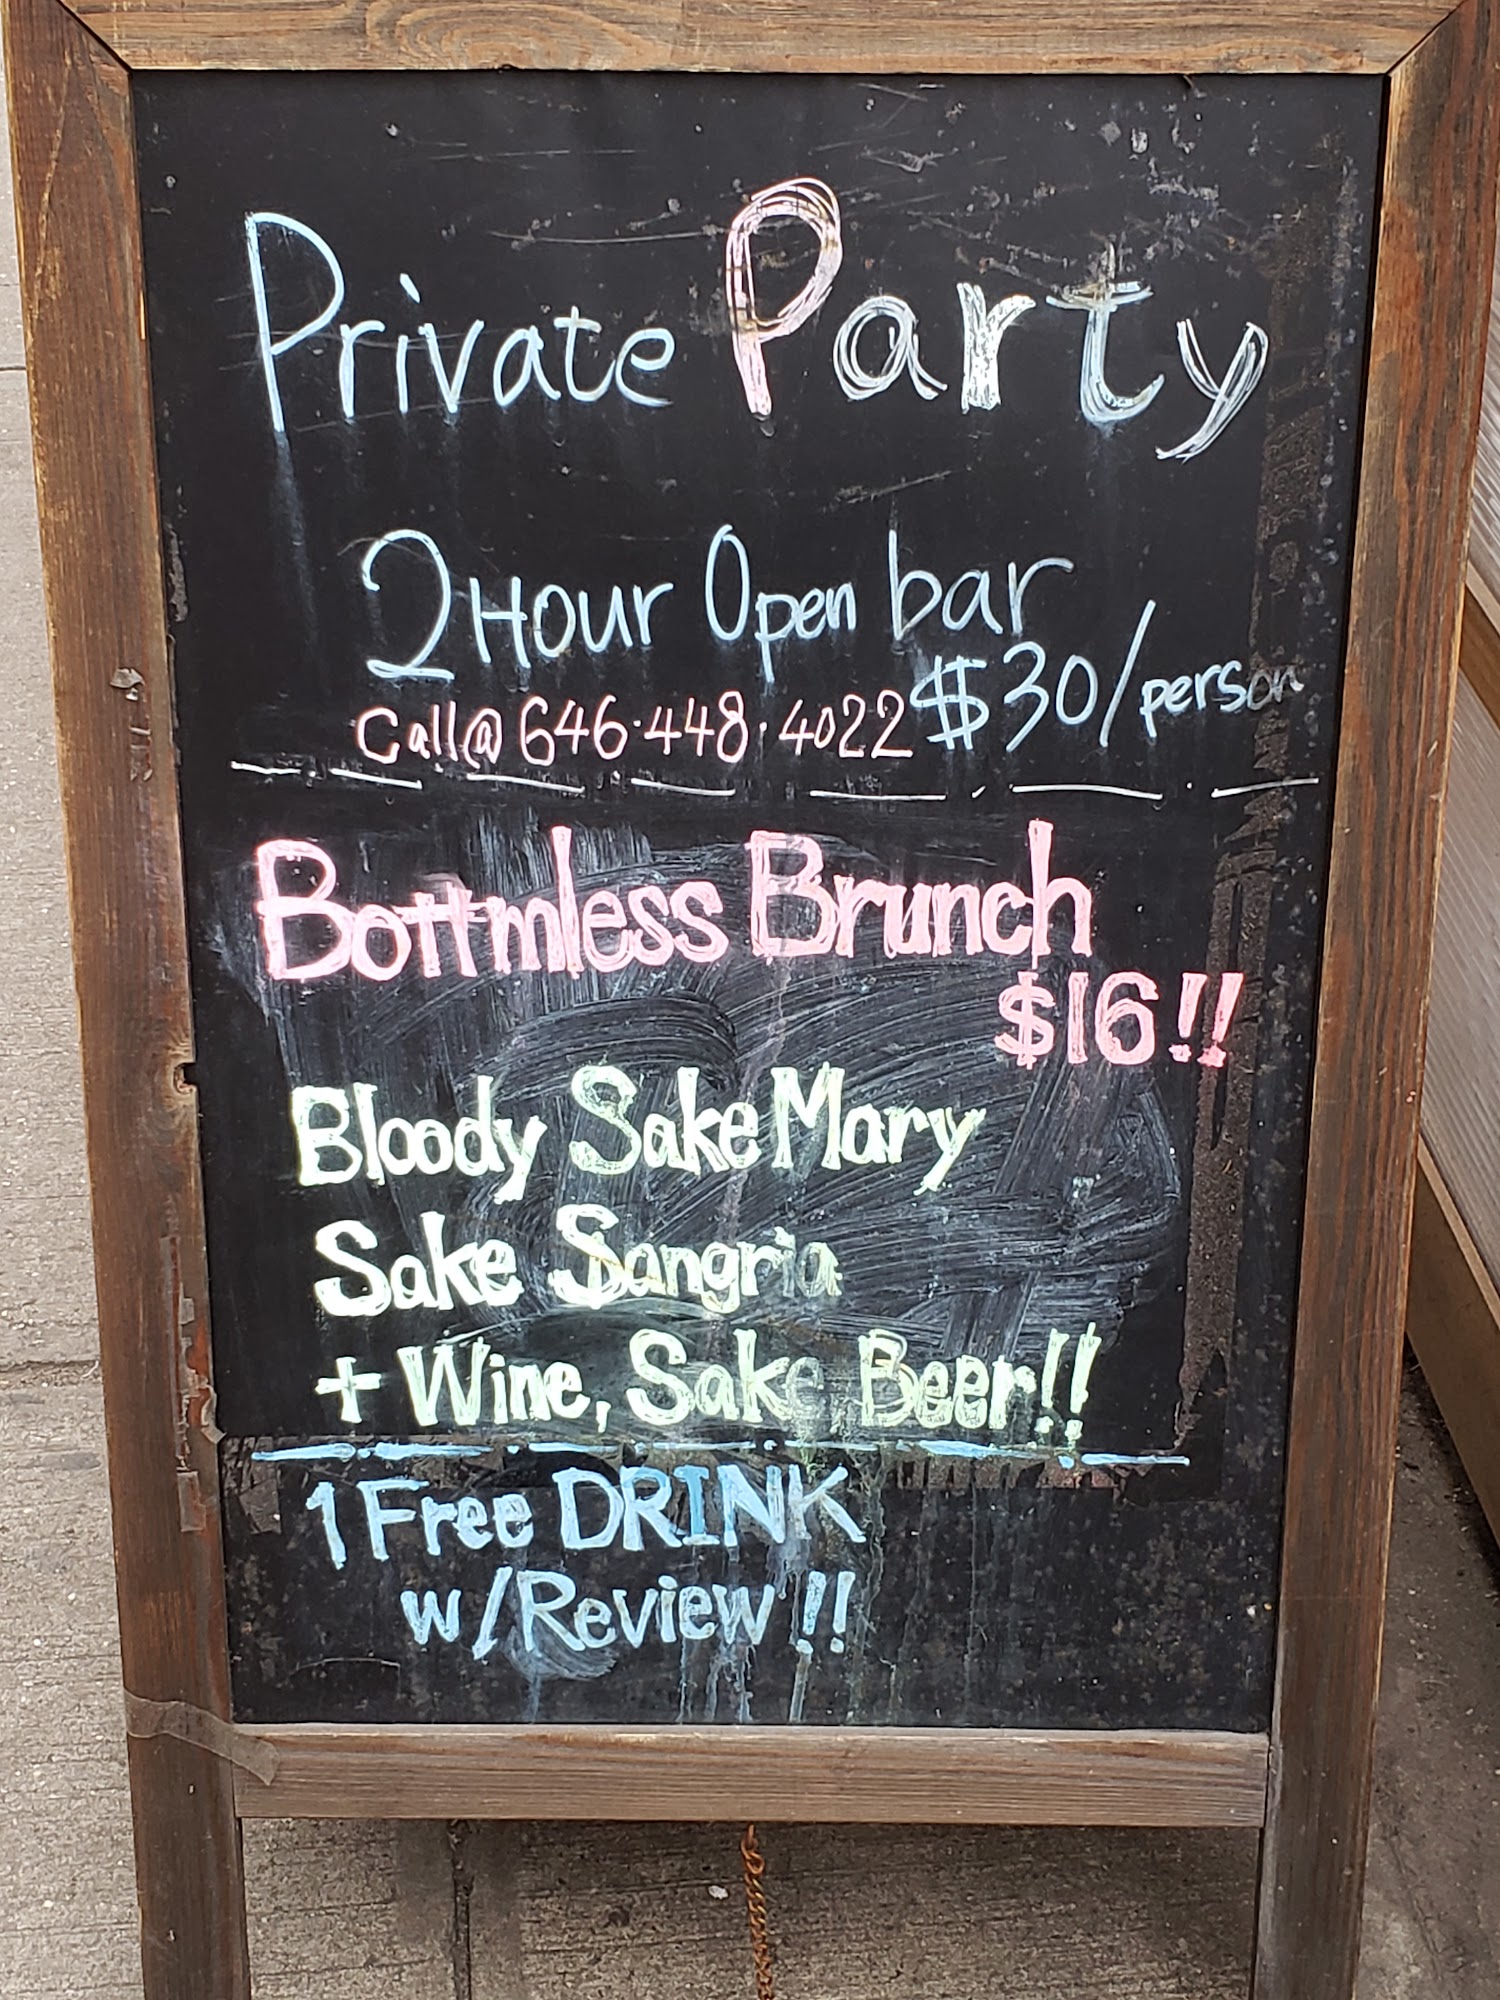 Private Party
2 Hour Open bar
$30/person
Call@ 646·448·4022
Bottmless Brunch
$16!!
Bloody Sake Mary
Sake Sangria
+ Wine, Sake, Beer!!
1 Free DRINK
w/Review!!